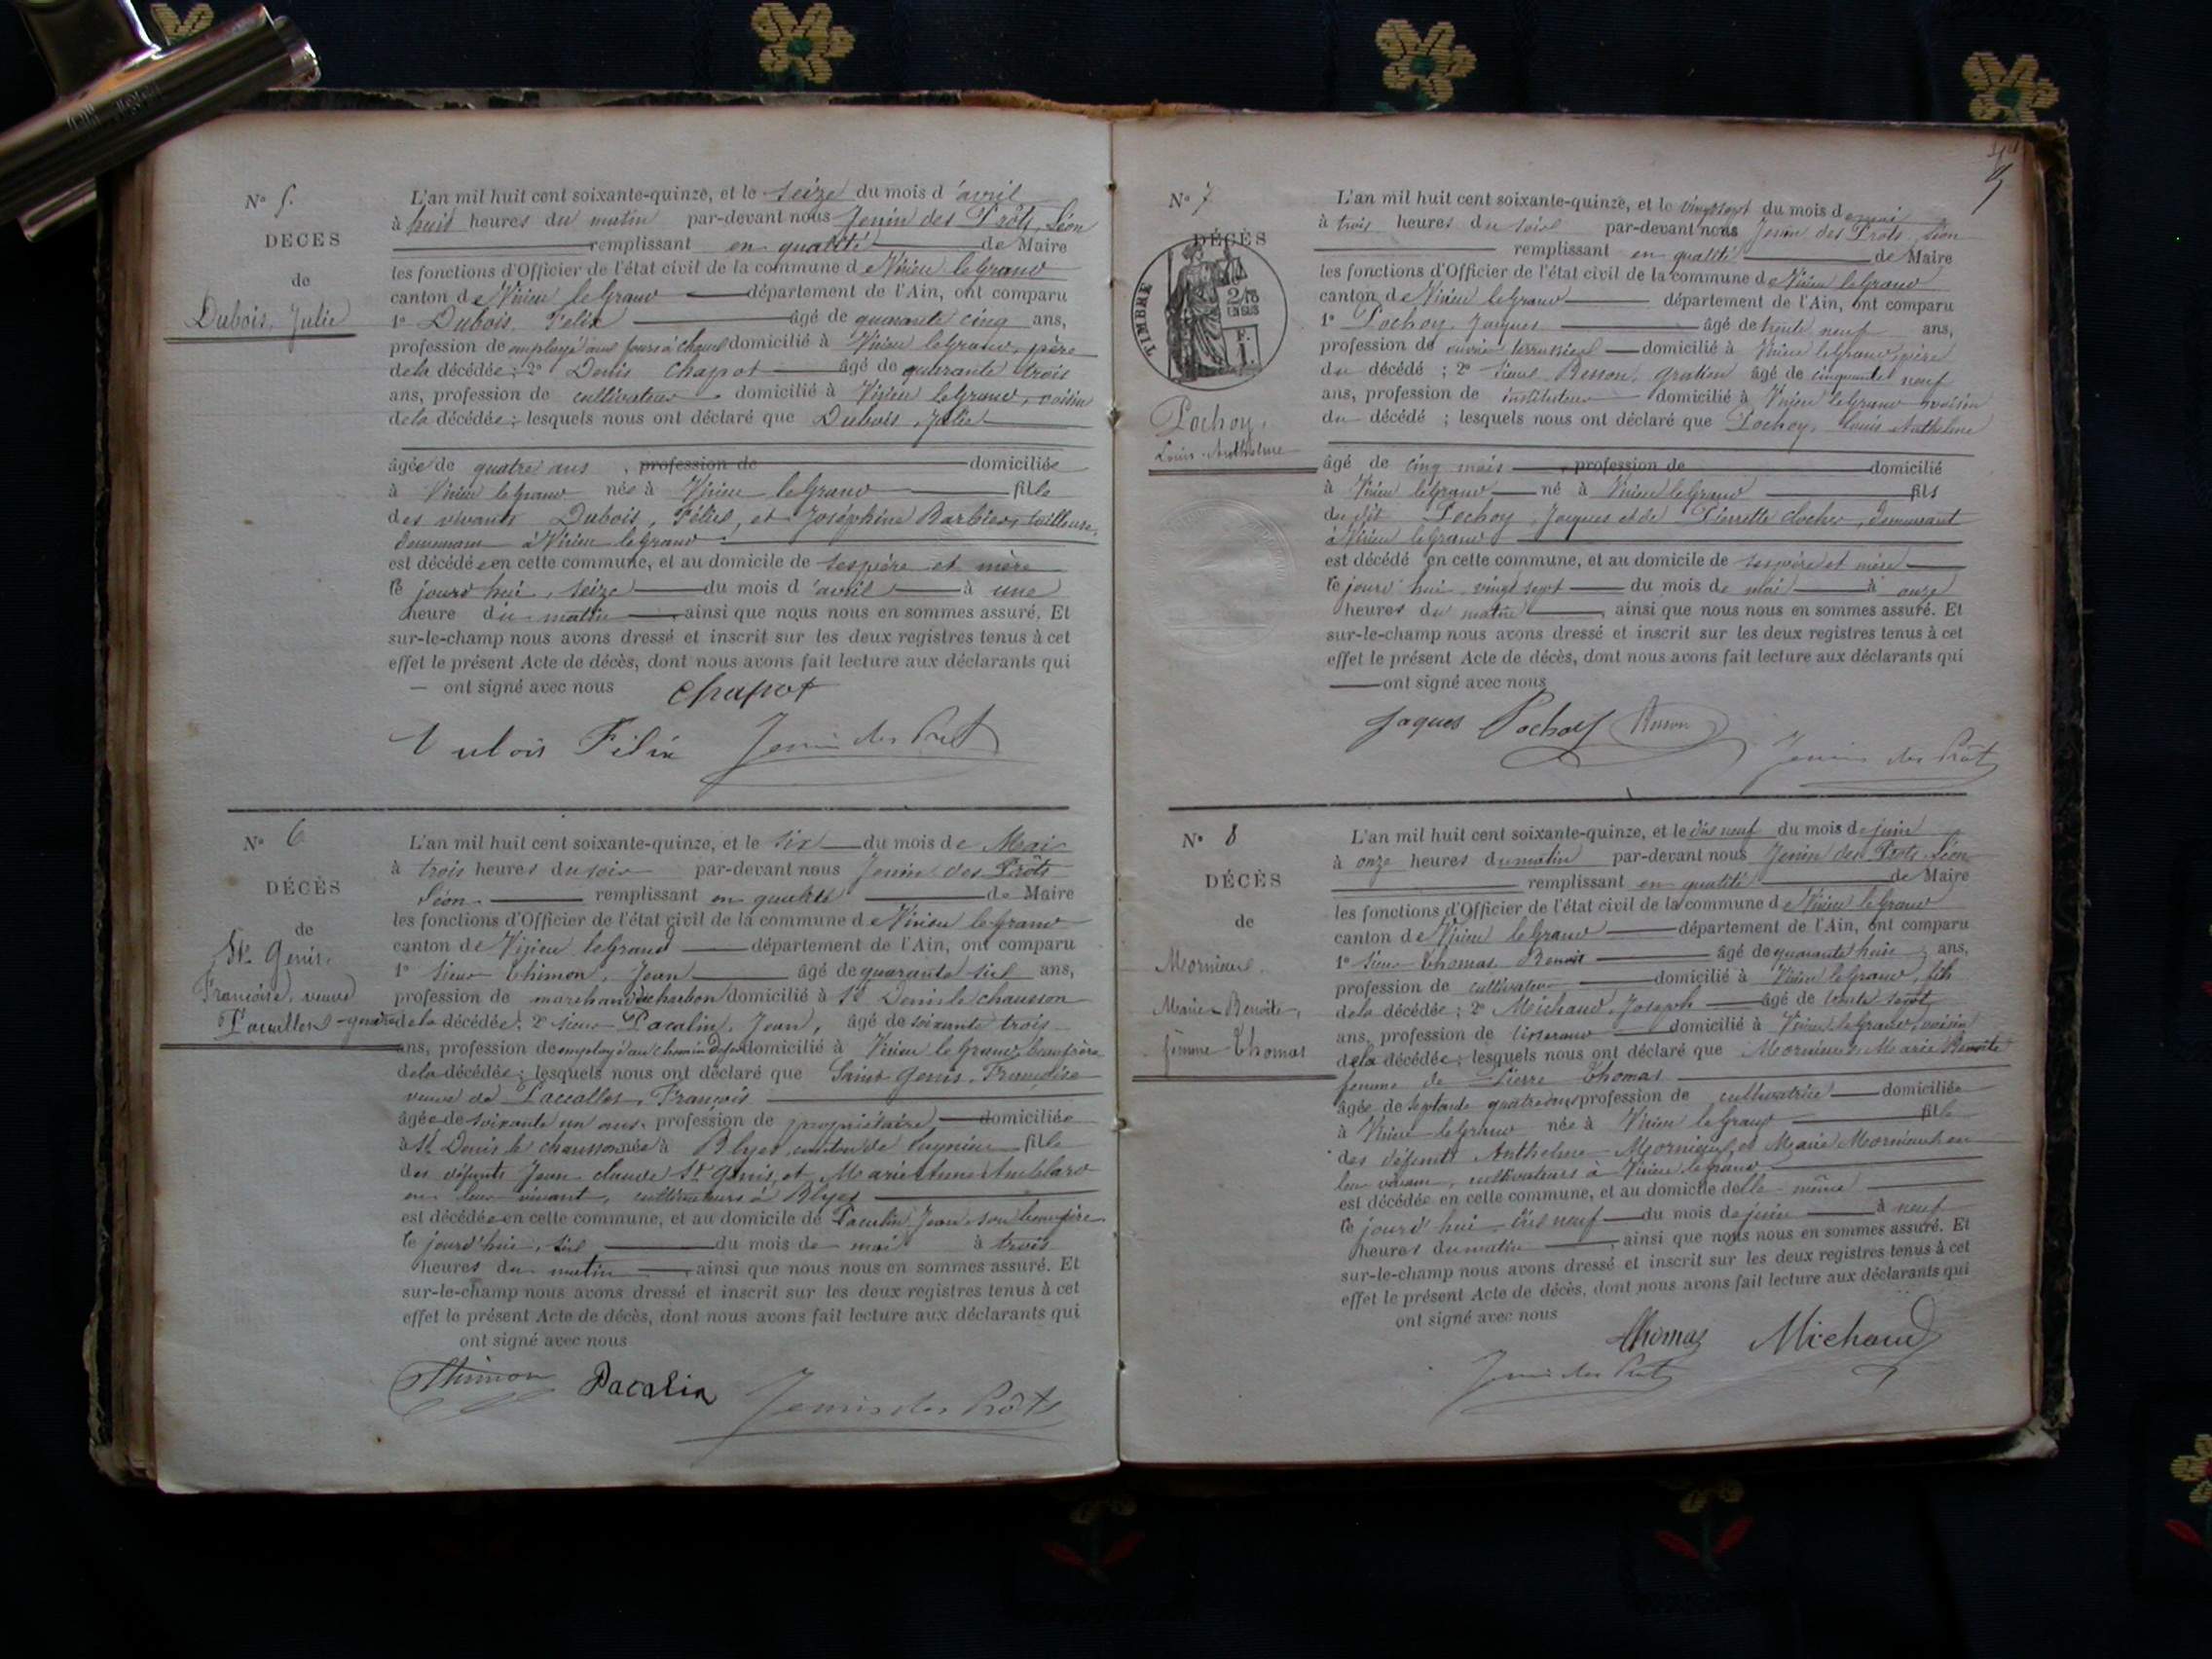 N° 5.
DÉCÈS
de
Dubois, Julie
L'an mil huit cent soixante-quinze, et le seize du mois d'avril
à huit heures du matin par-devant nous Jenin des Prôts, Léon
remplissant en qualité de Maire
les fonctions d'Officier de l'état civil de la commune de Virieu le Grand
canton de Virieu le Grand département de l'Ain, ont comparu
1° Dubois, Félix âgé de quarante cinq ans,
profession de employé aux fours à chaux domicilié à Virieu le Grand, père
de la décédée; 2° Denis Chapot âgé de quarante trois
ans, profession de cultivateur domicilié à Virieu le Grand, voisin
de la décédée; lesquels nous ont déclaré que Dubois, Julie
âgée de quatre ans, profession de domiciliée
à Virieu le Grand née à Virieu le Grand fille
des vivants Dubois, Félix, et Joséphine Barbier, tailleuse,
demeurant à Virieu le Grand
est décédée en cette commune, et au domicile de ses père et mère
le jourd'hui, seize du mois d'avril à une
heure du matin ainsi que nous nous en sommes assuré. Et
sur-le-champ nous avons dressé et inscrit sur les deux registres tenus à cet
effet le présent Acte de décès, dont nous avons fait lecture aux déclarants qui
ont signé avec nous Chapot
Dubois Félix Jenin des Prôts
N° 6
DÉCÈS
de
St Genis,
Françoise, veuve
L'an mil huit cent soixante-quinze, et le six du mois de Mai
à trois heures du soir par-devant nous Jenin des Prôts
Léon remplissant en qualité de Maire
les fonctions d'Officier de l'état civil de la commune de Virieu le Grand
canton de Virieu le Grand département de l'Ain, ont comparu
1° sieur Thimon, Jean âgé de quarante six ans,
profession de marchand de charbon domicilié à St Denis le chausson
gendre de la décédée; 2° sieur Pacalin, Jean, âgé de soixante trois
ans, profession de employé au chemin de fer domicilié à Virieu le Grand, beau frère
de la décédée; lesquels nous ont déclaré que Saint Genis, Françoise
veuve de François
âgée de soixante un ans, profession de propriétaire domiciliée
à St Denis le chausson née à Blyes, canton de Lagnieu fille
des défunts Jean claude St Genis, et Marie Anne Amblard
en leur vivant, cultivateurs à Blyes
est décédée en cette commune, et au domicile de Pacalin, Jean, son beau frère
le jourd'hui, six du mois de mai à trois
heures du matin ainsi que nous nous en sommes assuré. Et
sur-le-champ nous avons dressé et inscrit sur les deux registres tenus à cet
effet le présent Acte de décès, dont nous avons fait lecture aux déclarants qui
ont signé avec nous
Thimon Pacalin Jenin des Prôts
N° 7
DÉCÈS
TIMBRE
Pochoy,
Louis Anthelme
L'an mil huit cent soixante-quinze, et le vingt sept du mois de mai
à trois heures du soir par-devant nous Jenin des Prôts, Léon
remplissant en qualité de Maire
les fonctions d'Officier de l'état civil de la commune de Virieu le Grand
canton de Virieu le Grand département de l'Ain, ont comparu
1° Pochoy, Jacques âgé de trente neuf ans,
profession de ouvrier terrassier domicilié à Virieu le Grand, père
du décédé; 2° sieur Besson, Gratien âgé de cinquante neuf
ans, profession de instituteur domicilié à Virieu le Grand voisin
du décédé; lesquels nous ont déclaré que Pochoy, Louis Anthelme
âgé de cinq mois, profession de domicilié
à Virieu le Grand né à Virieu le Grand fils
du dit Pochoy, Jacques et de Pierrette demeurant
à Virieu le Grand
est décédé en cette commune, et au domicile de ses père et mère
le jourd'hui vingt sept du mois de mai à onze
heures du matin, ainsi que nous nous en sommes assuré. Et
sur-le-champ nous avons dressé et inscrit sur les deux registres tenus à cet
effet le présent Acte de décès, dont nous avons fait lecture aux déclarants qui
ont signé avec nous
Jaques Pochoy Besson
Jenin des Prôts
N° 8
DÉCÈS
de
Mornieux,
Marie Benoîte,
femme Thomas
L'an mil huit cent soixante-quinze, et le dix neuf du mois de juin
à onze heures du matin par-devant nous Jenin des Prôts, Léon
remplissant en qualité de Maire
les fonctions d'Officier de l'état civil de la commune de Virieu le Grand
canton de Virieu le Grand département de l'Ain, ont comparu
1° sieur Thomas Benoit âgé de quarante huit ans,
profession de cultivateur domicilié à Virieu le Grand, fils
de la décédée; 2° Michaud, Joseph âgé de trente sept
ans, profession de tisserand domicilié à Virieu le Grand, voisin
de la décédée; lesquels nous ont déclaré que Mornieux, Marie Benoîte
femme de Pierre Thomas
âgée de septante quatre ans profession de cultivatrice domiciliée
à Virieu le Grand née à Virieu le Grand fille
des défunts Anthelme Mornieux, et Marie Mornieux en
leur vivant, cultivateurs à Virieu le Grand
est décédée en cette commune, et au domicile d'elle-même
le jourd'hui dix neuf du mois de juin à neuf
heures du matin, ainsi que nous nous en sommes assuré. Et
sur-le-champ nous avons dressé et inscrit sur les deux registres tenus à cet
effet le présent Acte de décès, dont nous avons fait lecture aux déclarants qui
ont signé avec nous
Thomas Michaud
Jenin des Prôts